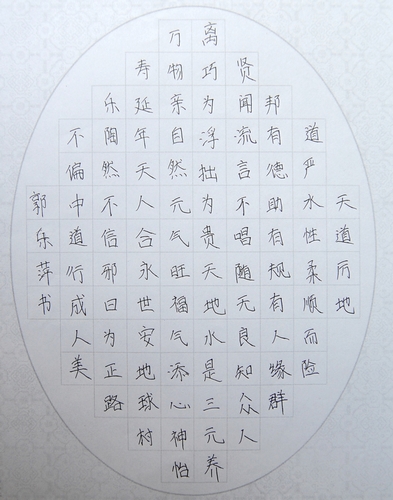 天道厉地
道严水性柔顺而险
邦有德助有规有人缘群
贤闻流言不唱随无良知众人
离巧为浮拙为贵天地水是三元养
万物亲自然元气旺福气添心神怡
寿延年天人合永世安地球村
乐陶然不信邪曰为正路
不偏中道行成人美
郭乐萍书